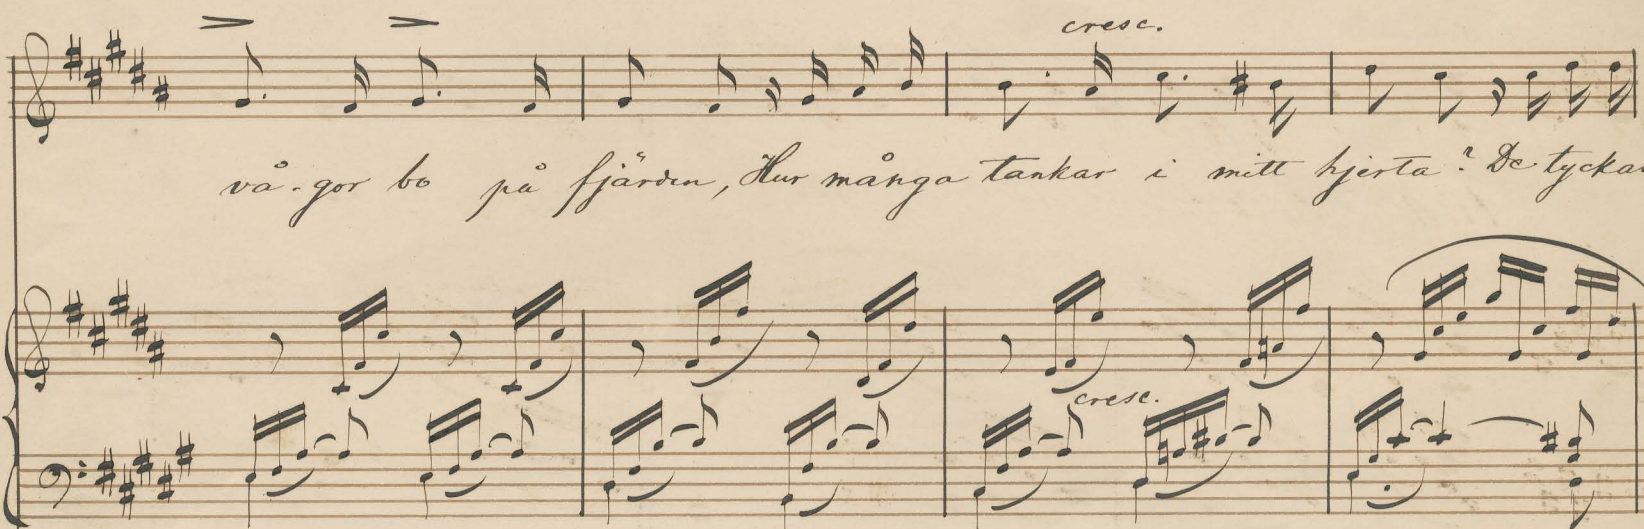 cresc.
vå-gor bo på fjärden, Hur många tankar i mitt hjerta? De tycka
cresc.